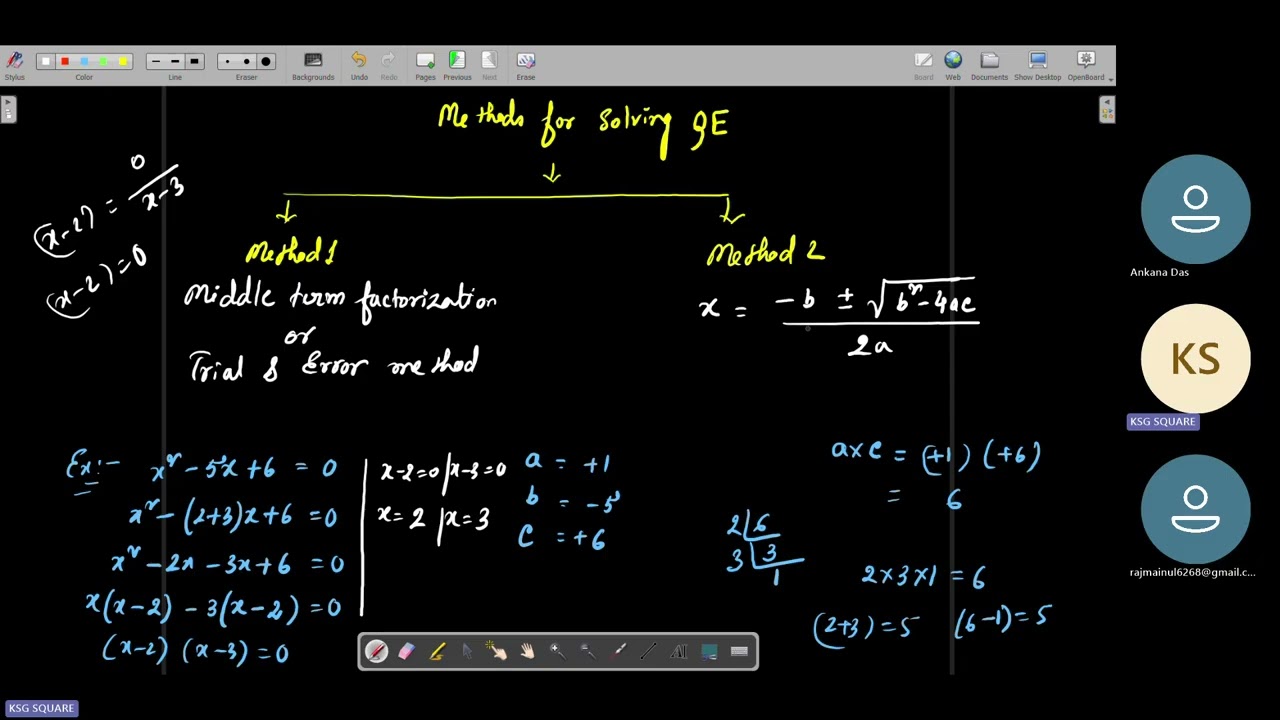 Stylus
Color
Line
Eraser
Backgrounds
Undo
Redo
Pages
Previous
Next
Erase
Board
Web
Documents
Show Desktop
OpenBoard
Methods for Solving QE
↓
Method 1
Method 2
Middle term factorization
or
Trial & Error method
x = (-b ± √(b² - 4ac)) / 2a
(x-2) = 0/(x-3)
(x-2) = 0
Ex:- x² - 5x + 6 = 0
x² - (2+3)x + 6 = 0
x² - 2x - 3x + 6 = 0
x(x-2) - 3(x-2) = 0
(x-2) (x-3) = 0
x-2=0 | x-3=0
x = 2 | x = 3
a = +1
b = -5
c = +6
a×c = (+1) (+6)
= 6
2 | 6
3 | 3
1
2×3×1 = 6
(2+3) = 5 (6-1) = 5
Ankana Das
KS
KSG SQUARE
rajmainul6268@gmail.c...
KSG SQUARE